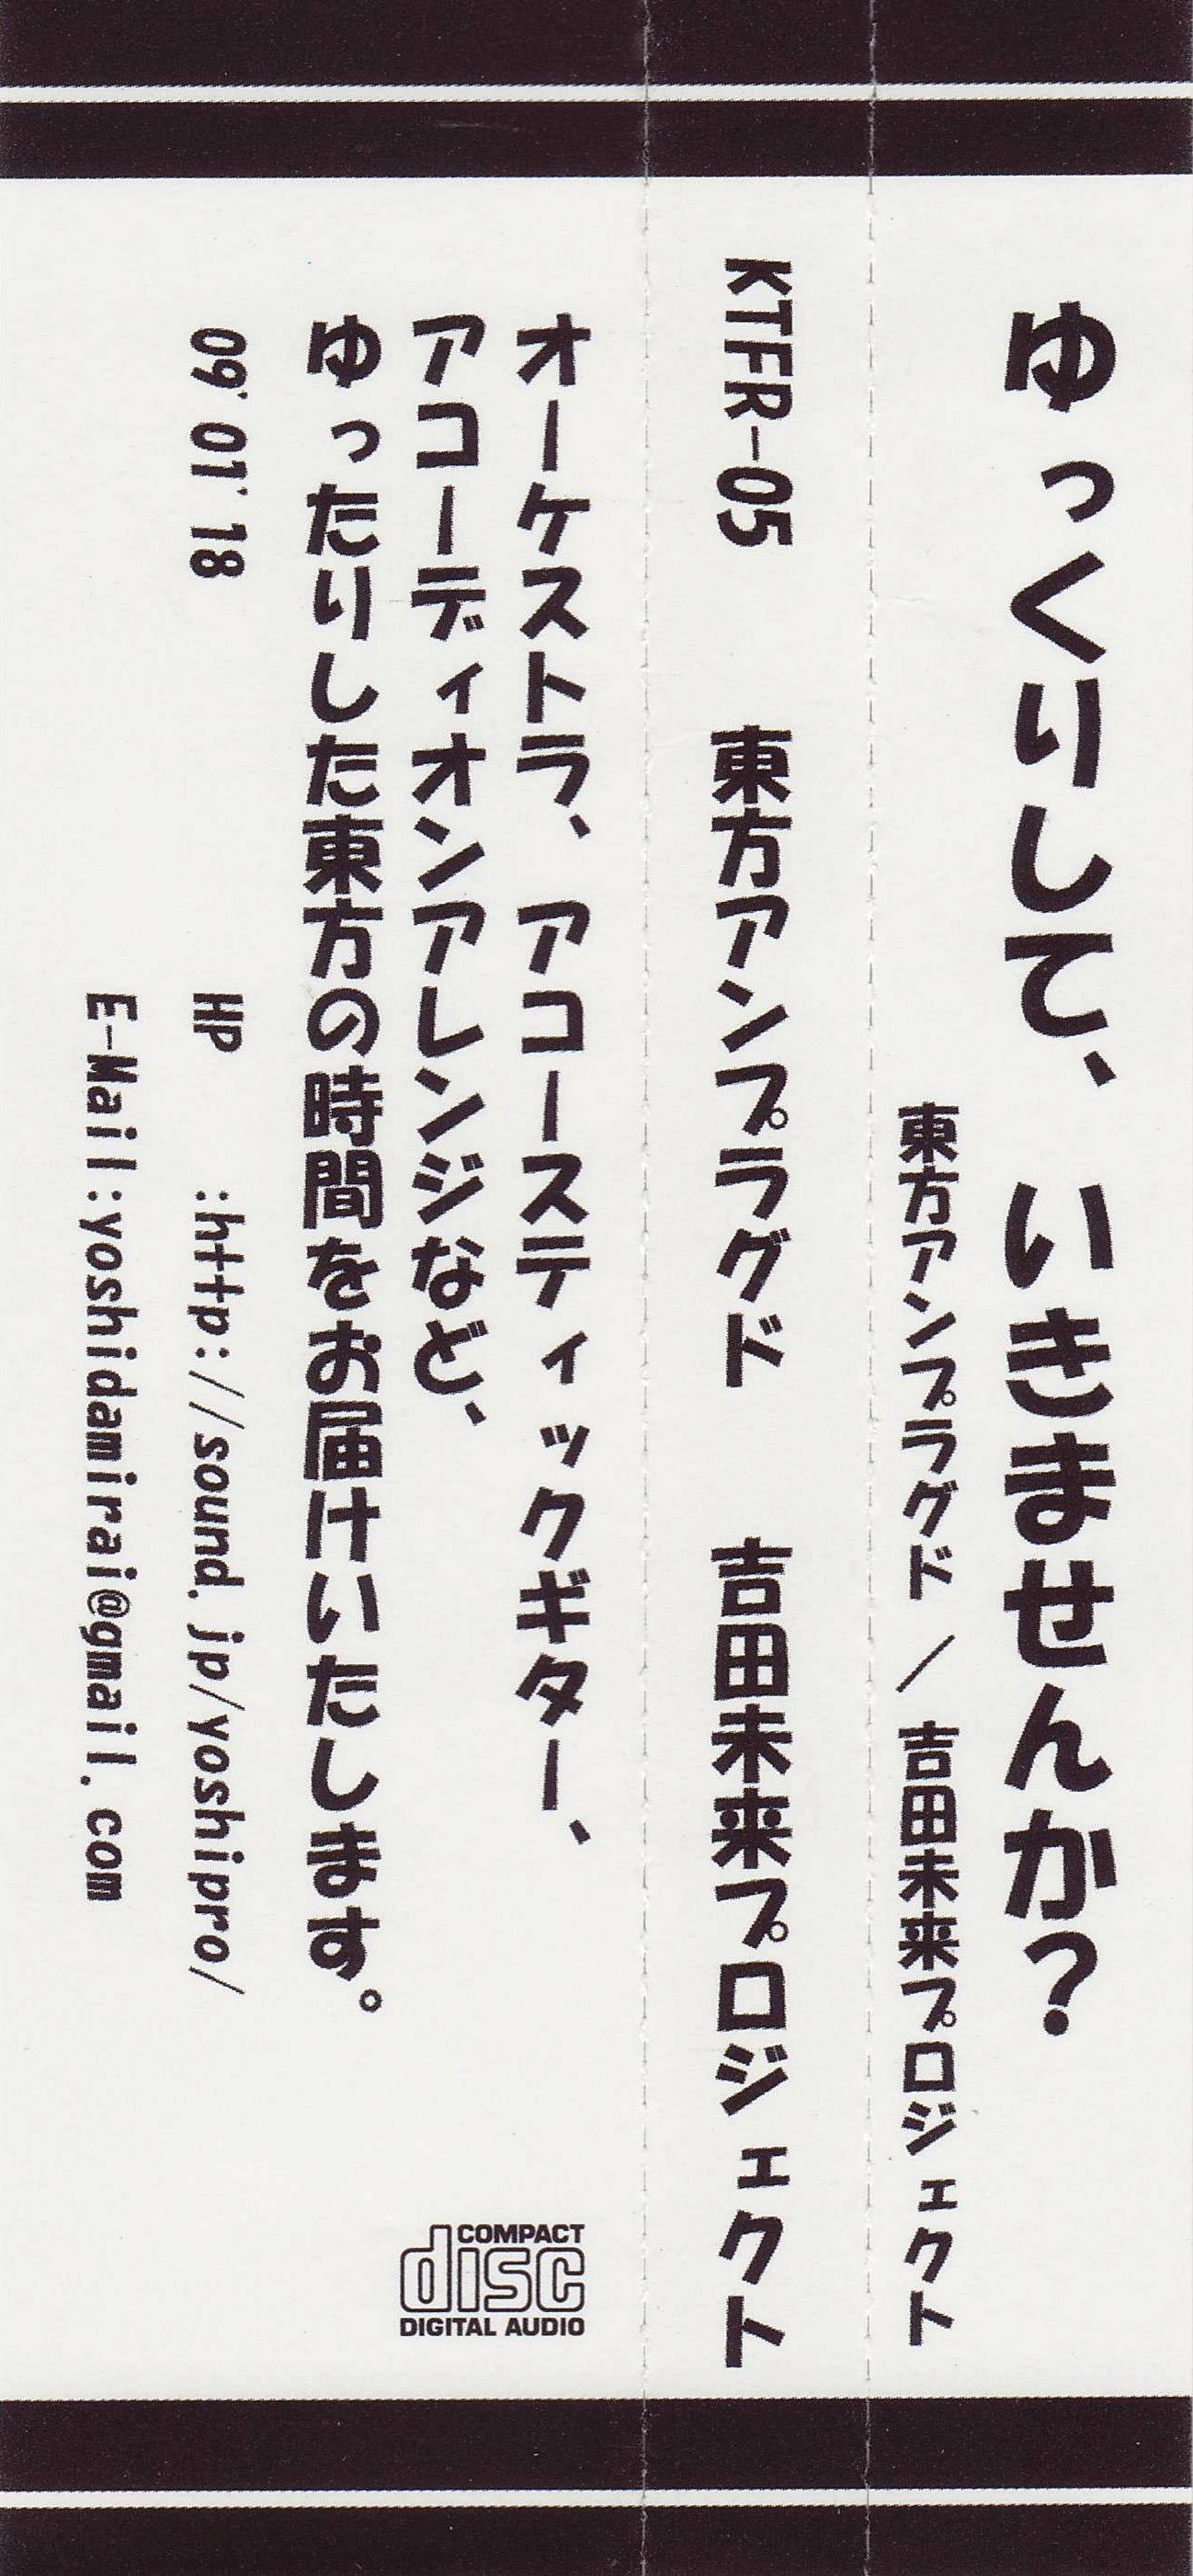 ゆっくりして、いきませんか？
東方アンプラグド ／ 吉田未来プロジェクト
KTFR-05 東方アンプラグド 吉田未来プロジェクト
オーケストラ、アコースティックギター、
アコーディオンアレンジなど、
ゆったりした東方の時間をお届けいたします。
09' 01' 18
HP :http://sound.jp/yoshipro/
E-Mail:yoshidamirai@gmail.com
COMPACT
disc
DIGITAL AUDIO